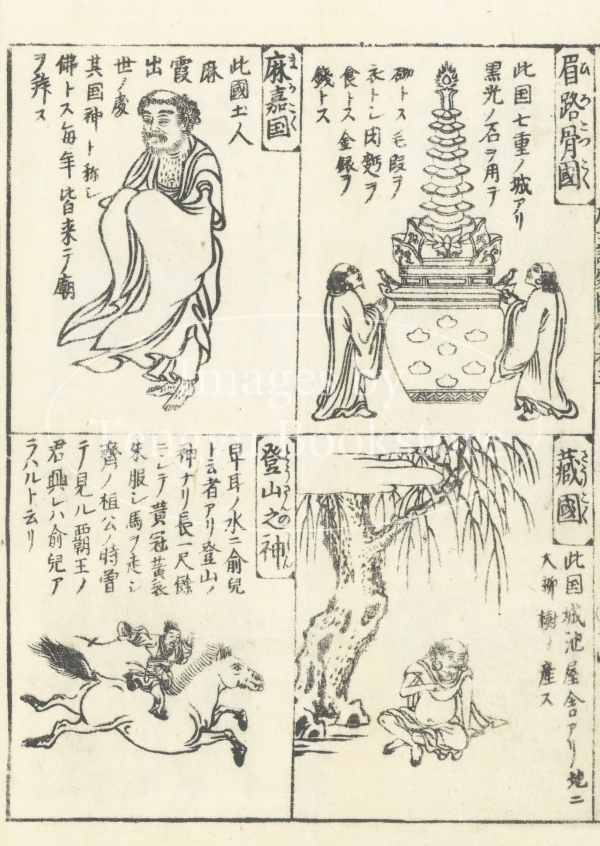 眉路骨國
ひろこつこく
此国七重ノ城アリ
黒光ノ石ヲ用テ
砌トス毛段ヲ
衣トシ肉麪ヲ
食トス金銀ヲ
錢トス
麻嘉国
まかこく
此國土人
麻
霞
出
世ノ處
其国神ト称シ
佛トス毎年皆来テノ廟
ヲ拜ス
藏國
ざうこく
此国城池屋舎アリ地ニ
大柳樹ヲ産ス
登山之神
とうさんのしん
卑耳ノ水ニ俞兒
ト云者アリ登山ノ
神ナリ長一尺餘
ニシテ黄冠黄衣
朱服シ馬ヲ走シ
齊ノ祖公ノ時曽
テ見ル覇王ノ
君興レハ俞兒ア
ラハルト云リ
Images by
Tenkyu Bookstore